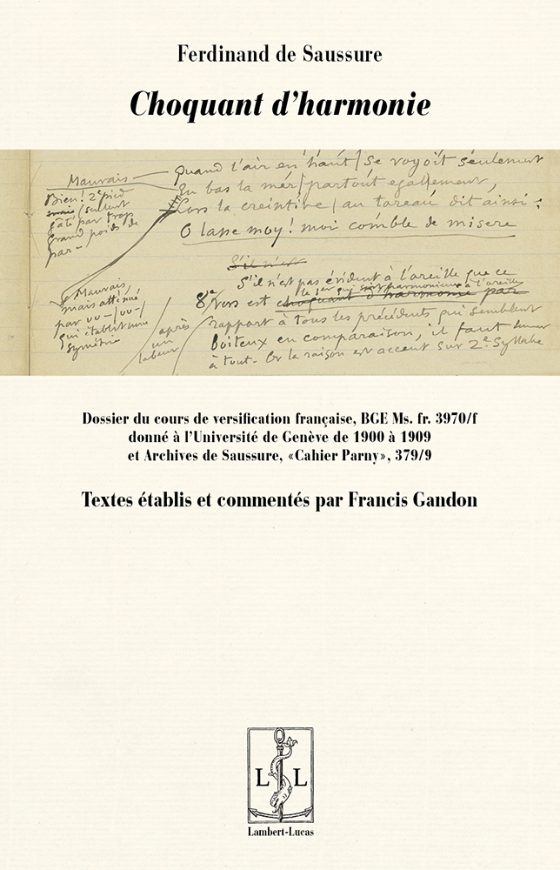 Ferdinand de Saussure
Choquant d'harmonie
Mauvais
Quand l'air en haut / se voyoit seulement
En bas la mer / partout egallement,
Lors la creintive / au toreau dit ainsi:
O lasse moy! moi comble de misere
Bien! 2e pied
mais / suivant
gâté par trop
grand poids de
par –
Mauvais
mais atténué
par υυ–/υυ–/
qui établit une
symétrie
après
un
labeur
S'il n'est
S'il n'est pas évident à l'oreille que ce
le 1er qui soit harmonieux à l'oreille
8e vers est choquant d'harmonie par
rapport à tous les précédents qui semblent
boiteux en comparaison, il faut
à tout. Or la raison est accent sur 2e syllabe
Dossier du cours de versification française, BGE Ms. fr. 3970/f
donné à l'Université de Genève de 1900 à 1909
et Archives de Saussure, «Cahier Parny», 379/9
Textes établis et commentés par Francis Gandon
L L
Lambert-Lucas